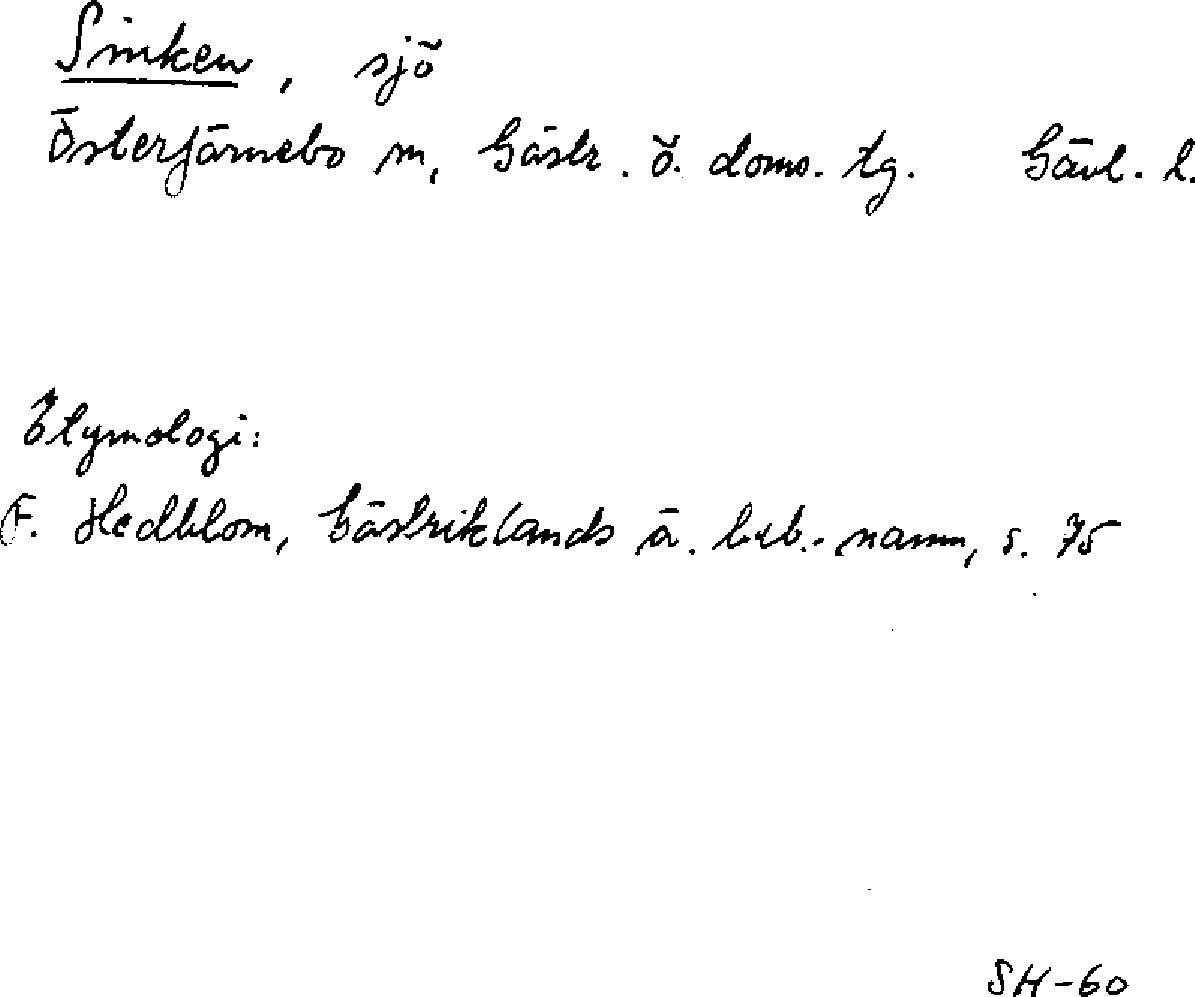 Sinken, sjö
Österfärnebo sn, Gästr. ö. doms. tg. Gävl. l.
Etymologi:
F. Hedblom, Gästriklands ä. beb.-namn, s. 75
SH-60